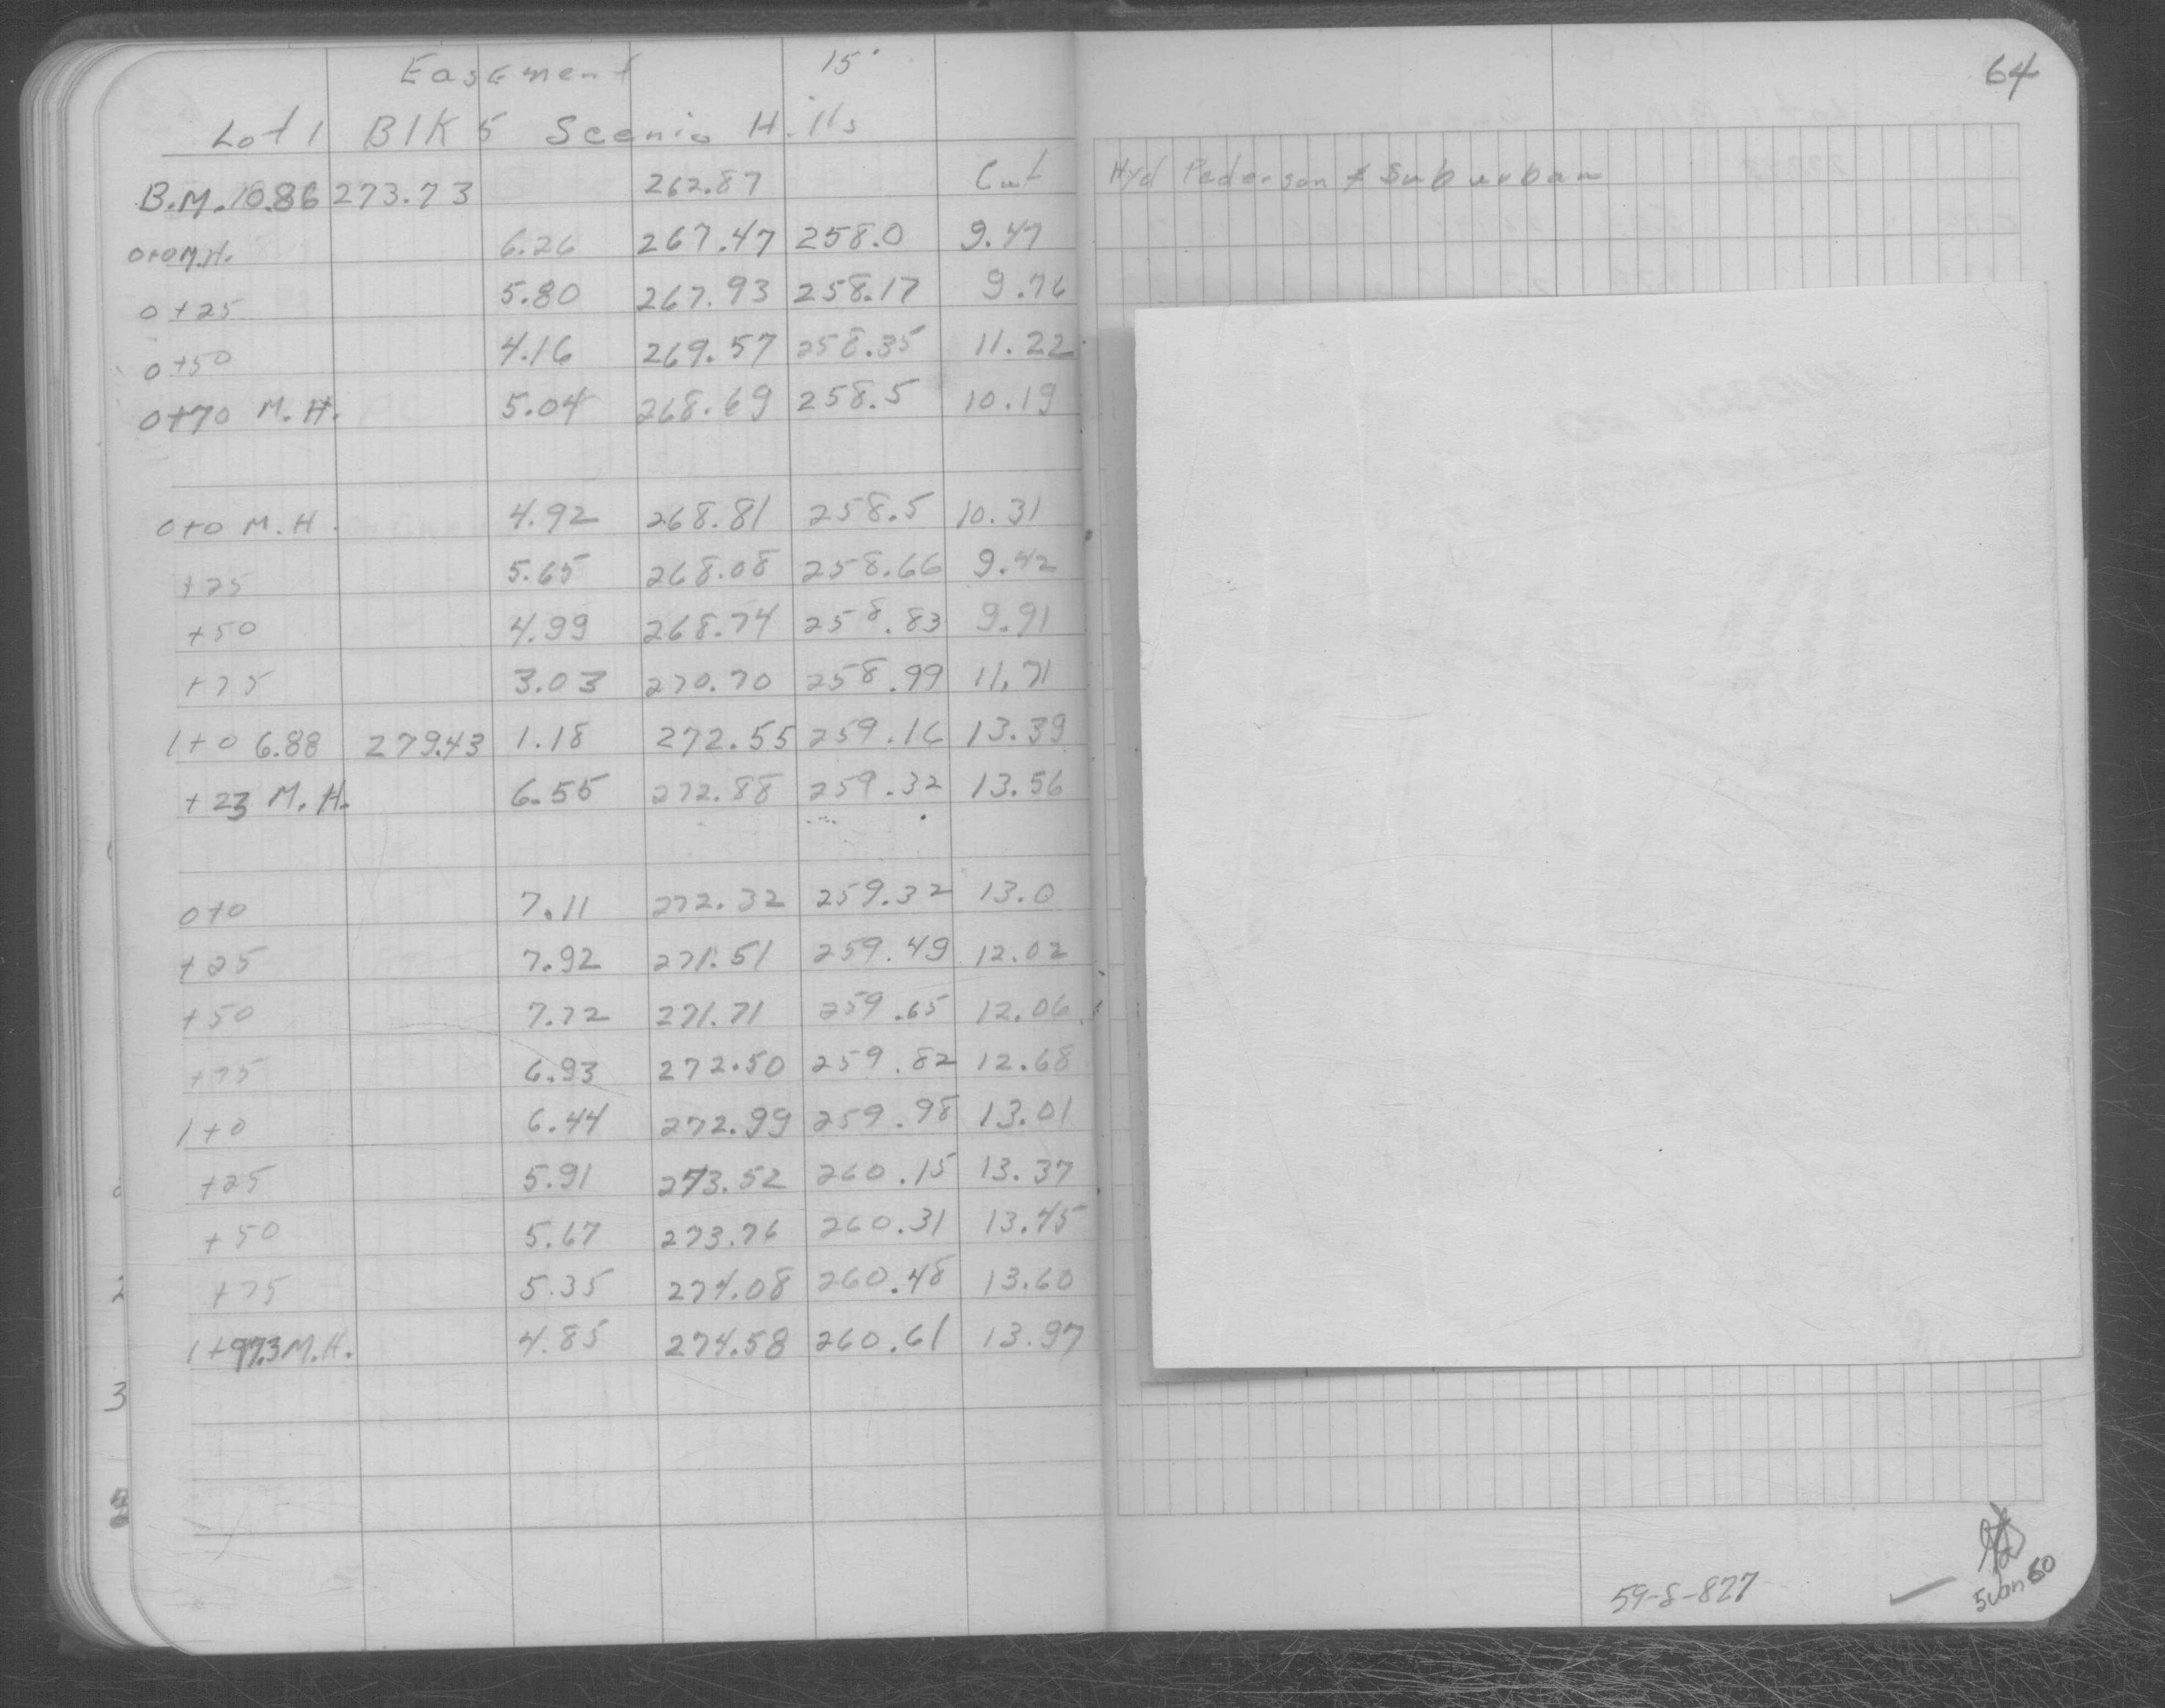 Easement 15'
Lot 1 Blk 5 Scenic Hills
B.M. 10.86 273.73 262.87 Cut
0+0 M.H. 6.26 267.47 258.0 9.47
0+25 5.80 267.93 258.17 9.76
0+50 4.16 269.57 258.35 11.22
0+70 M.H. 5.04 268.69 258.5 10.19
0+0 M.H. 4.92 268.81 258.5 10.31
+25 5.65 268.08 258.66 9.42
+50 4.99 268.74 258.83 9.91
+75 3.03 270.70 258.99 11.71
1+0 6.88 279.43 1.18 272.55 259.16 13.39
+23 M.H. 6.55 272.88 259.32 13.56
0+0 7.11 272.32 259.32 13.0
+25 7.92 271.51 259.49 12.02
+50 7.72 271.71 259.65 12.06
+75 6.93 272.50 259.82 12.68
1+0 6.44 272.99 259.98 13.01
+25 5.91 273.52 260.15 13.37
+50 5.67 273.76 260.31 13.45
+75 5.35 274.08 260.48 13.60
1+97.3 M.H. 4.85 274.58 260.61 13.97
64
Hyd Pederson & Suburban
59-S-827
5 Jan 60